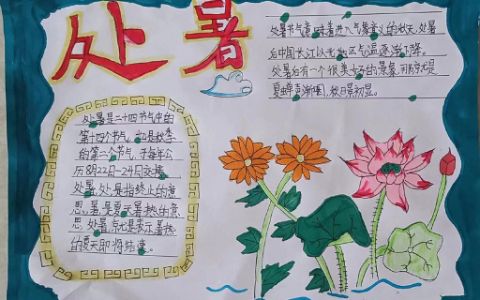 处暑
处暑节气意味着进入气象意义的秋天,处暑
后中国长江以北地区气温逐渐下降。
处暑后有一个很美好的景象,那就是
夏蝉声渐隐,秋日景初显。
处暑是二十四节气中的
第十四个节气,也是秋季
的第二个节气,于每年公
历8月22日-24日交接。
处暑,处是指终止的意
思,暑是夏天暑热的意
思,处暑,就是表示暑热
的夏天即将结束。